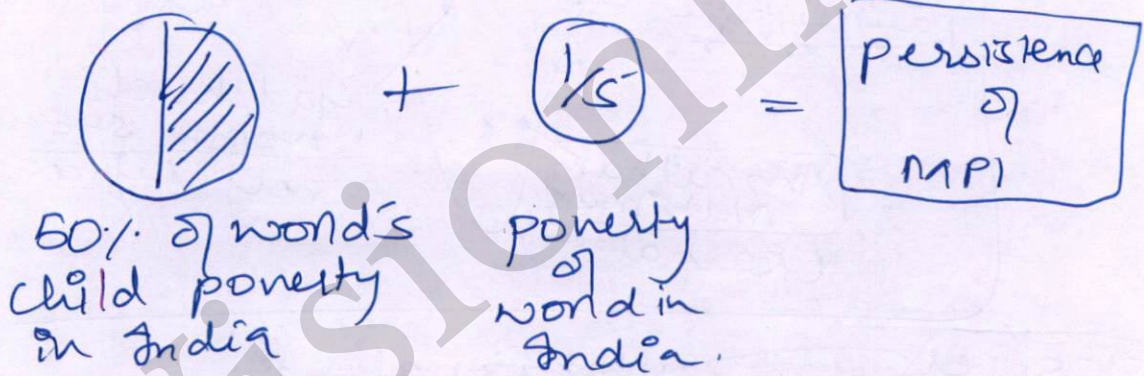 +
1/5
=
Persistence
of
MPI
50% of world's
child poverty
in India
poverty
of
world in
India.